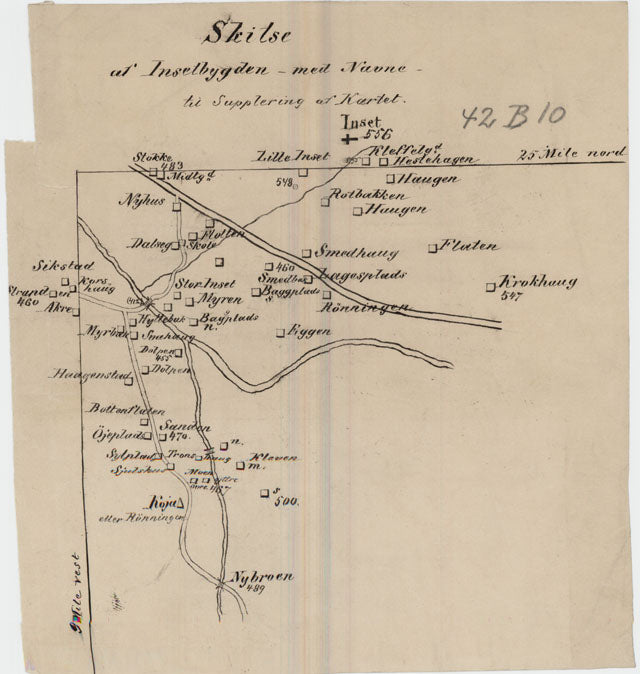 Skitse
af Insetbygden - med Navne -
til Supplering af Kartet.
42 B 10
Inset
556
Stokke
483
Midtg.d
Lille Inset
548
Kleffelg.d
Hestehagen
25 Mile nord
Haugen
Nyhus
Rotbakken
Haugen
Flotten
Dalseg
Skole
Smedhaug
Flaten
Sikstad
Kors
haug
Stor Inset
460
Smedbag
Lagesplads
Krokhaug
547
Stranden
460
Akre
Myren
Bagplads
s.
Rönningen
Hyttebak
Bagplads
n.
Myrbak
Smehaug
Eggen
Dölpen
455
Dölpen
Haagenstad
Bottenflaten
Sanden
470.
Öjeplads
n.
Sylplads
Trons
haug
Kleven
m.
Moen
s
500.
Koja
eller Rönningen
Nybroen
489
9 Mile vest